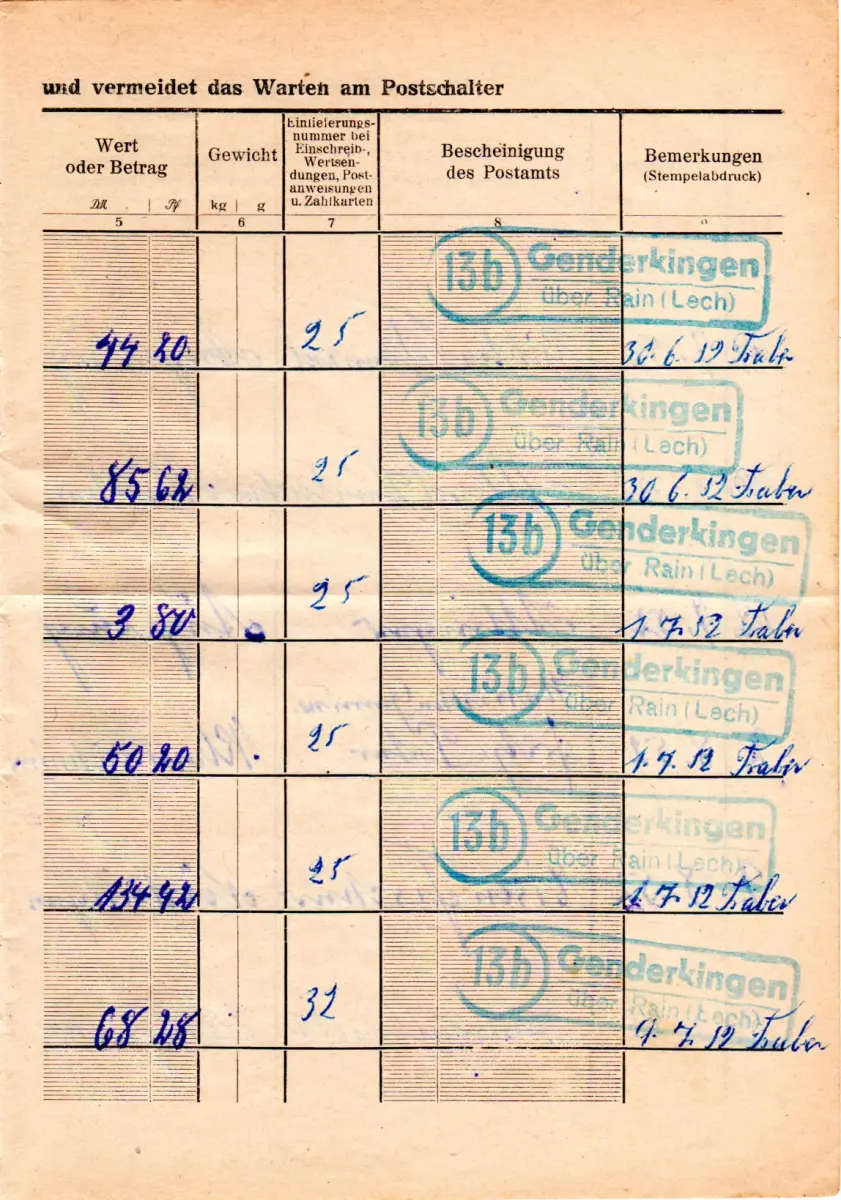 und vermeidet das Warten am Postschalter
Wert
oder Betrag
DM | Pf
5
Gewicht
kg | g
6
Einlieferungs-
nummer bei
Einschreib-,
Wertsen-
dungen, Post-
anweisungen
u. Zahlkarten
7
Bescheinigung
des Postamts
8
Bemerkungen
(Stempelabdruck)
13b Genderkingen
über Rain (Lech)
44 20 25 30. 6. 52 Traber
13b Genderkingen
über Rain (Lech)
85 62 25 30. 6. 52 Traber
13b Genderkingen
über Rain (Lech)
3 80 25 1. 7. 52 Traber
13b Genderkingen
über Rain (Lech)
50 20 25 1. 7. 52 Traber
13b Genderkingen
über Rain (Lech)
134 42 25 1. 7. 52 Traber
13b Genderkingen
über Rain (Lech)
68 28 32 9. 7. 52 Traber